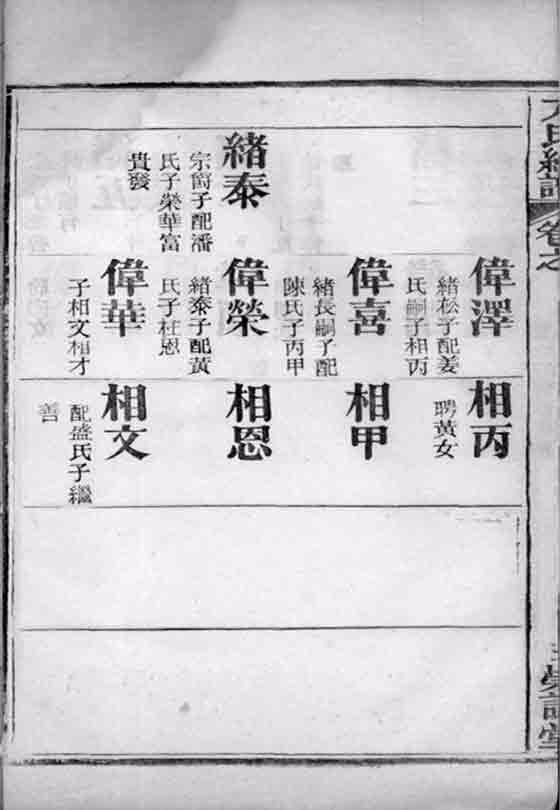 緒泰
宗商子配潘
氏子榮華富
貴發
偉澤
緒松子配姜
氏嗣子相丙
偉喜
緒長嗣子配
陳氏子丙甲
偉榮
緒泰子配黃
氏子杜恩
偉華
子相文相才
相丙
聘黃女
相甲
相恩
相文
配盛氏子繼
善